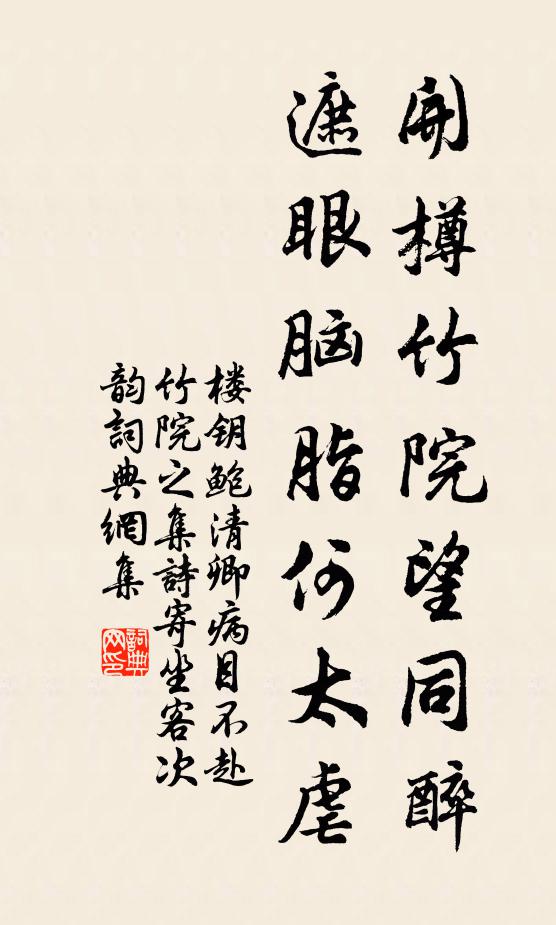 開樽竹院望同醉
遮眼脑脂何太虐
楼钥鲍清卿病目不赴
竹院之集詩寄坐客次
韵詞典網集
詞典网印